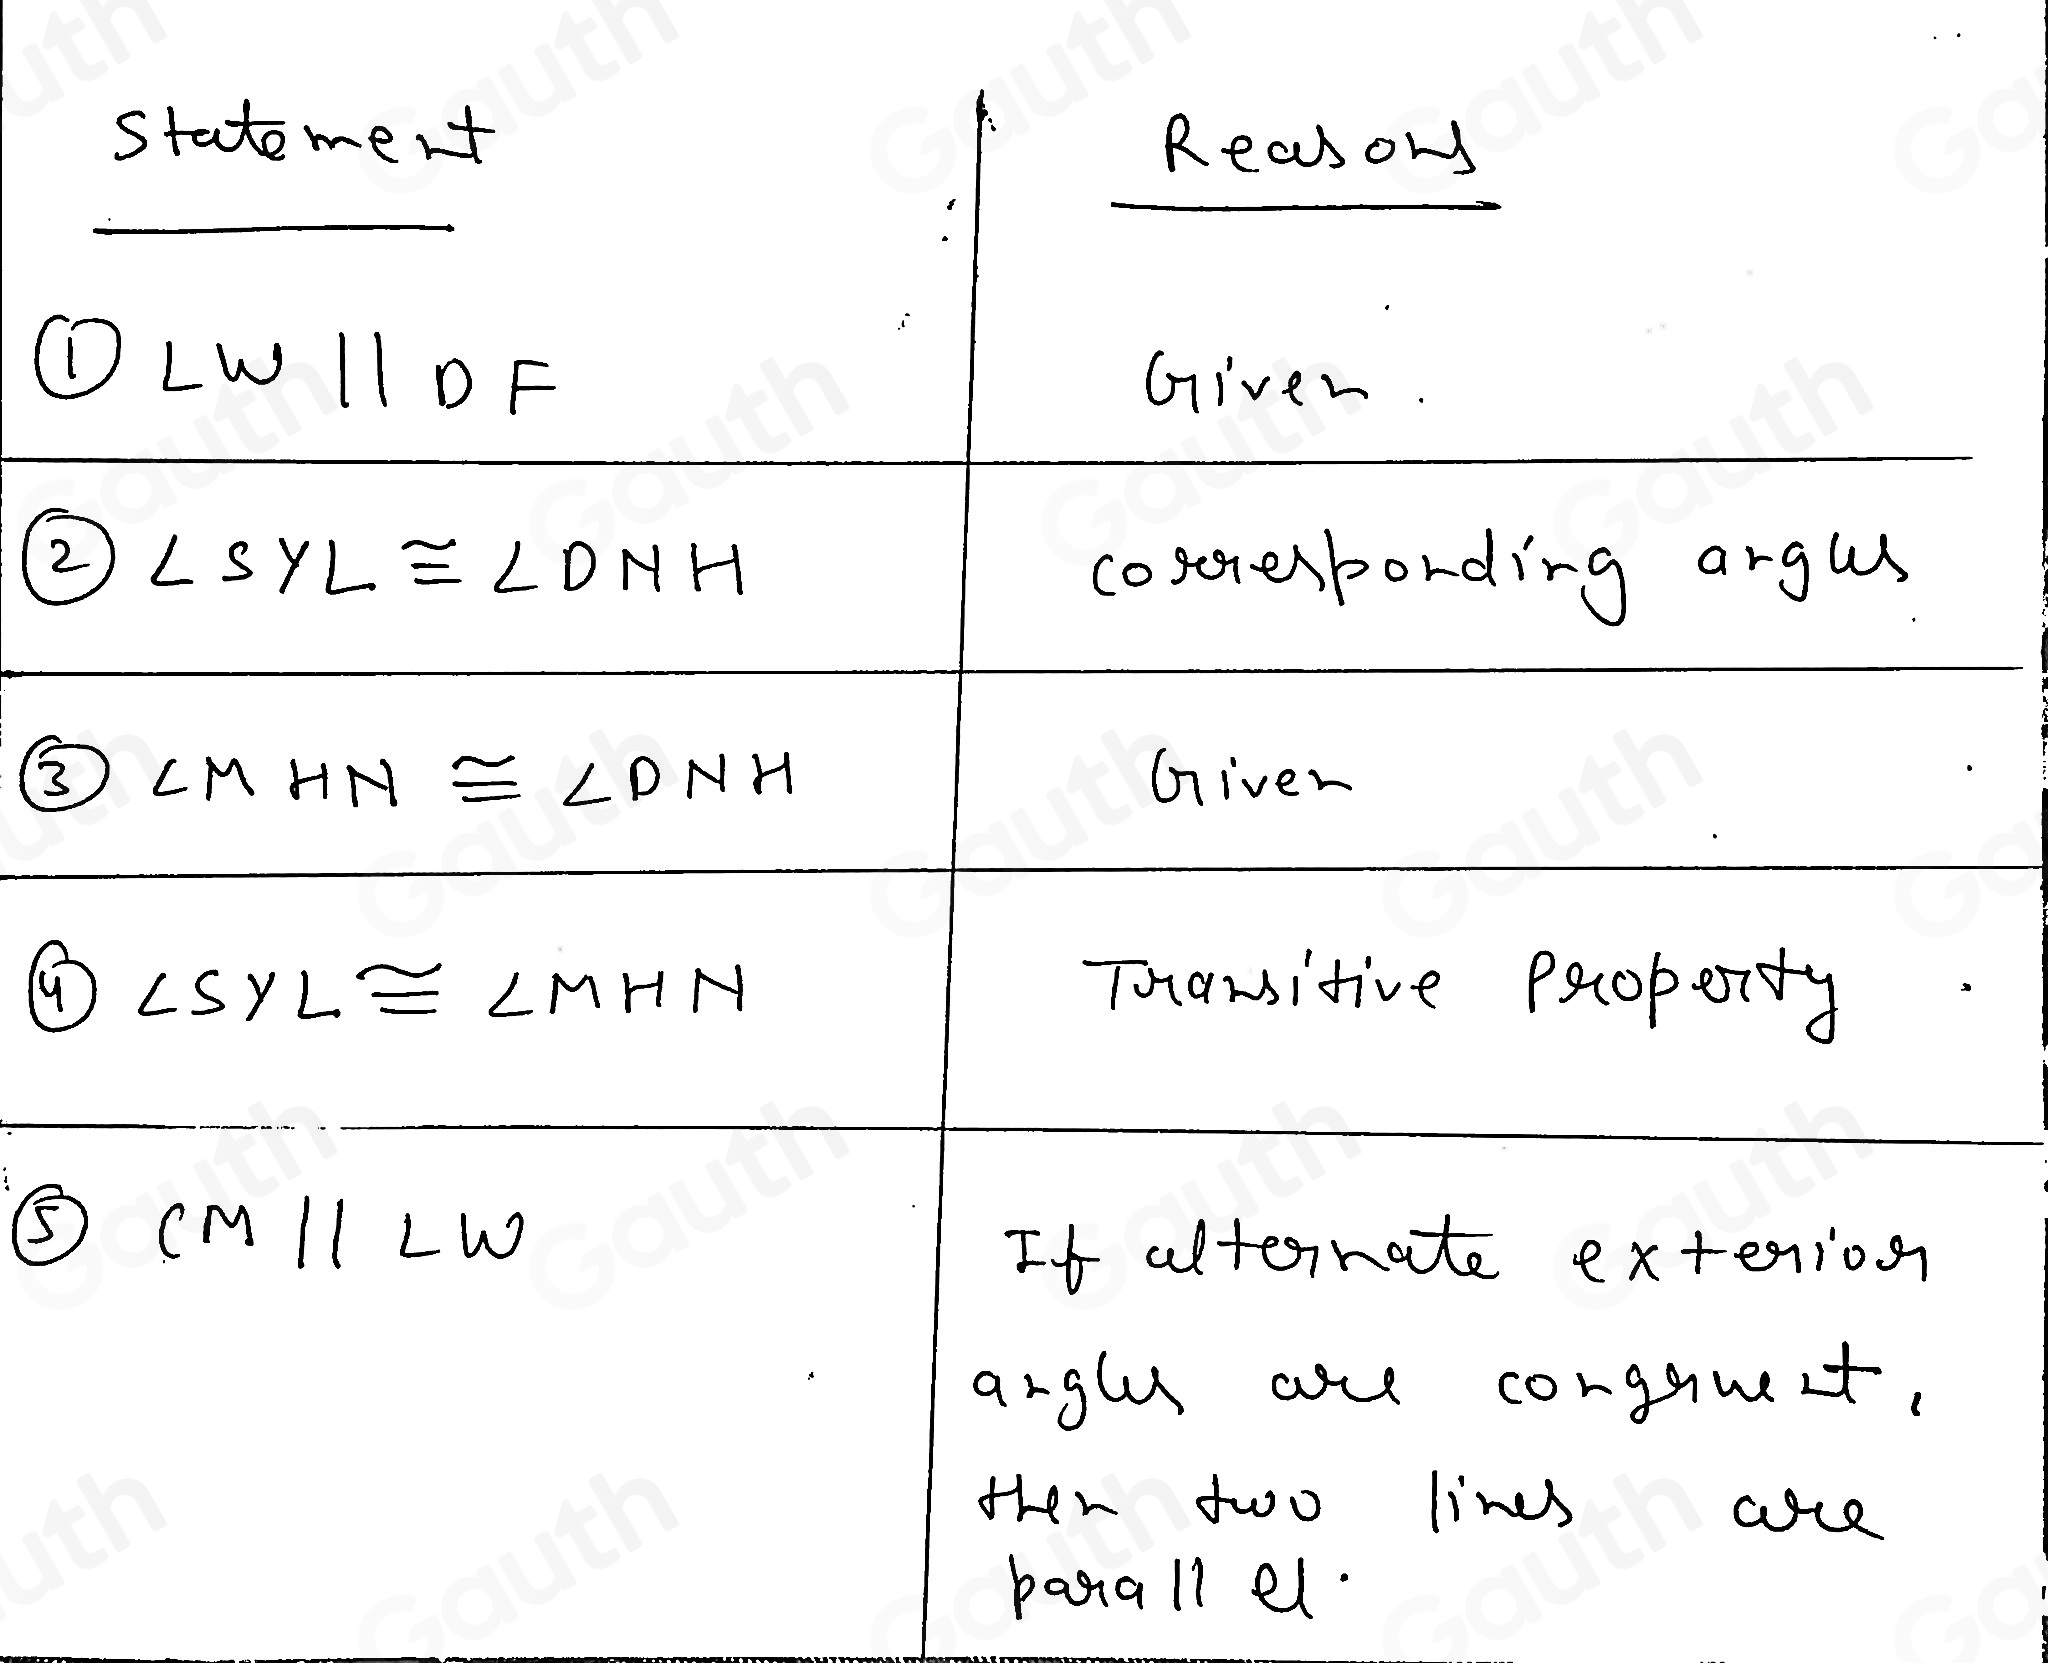 Statement | Reasons
① LW || DF | Given.
② ∠SYL ≅ ∠DNH | corresponding angles
③ ∠MHN ≅ ∠DNH | Given
④ ∠SYL ≅ ∠MHN | Transitive Property
⑤ CM || LW | If alternate exterior
angles are congruent,
then two lines are
parallel.